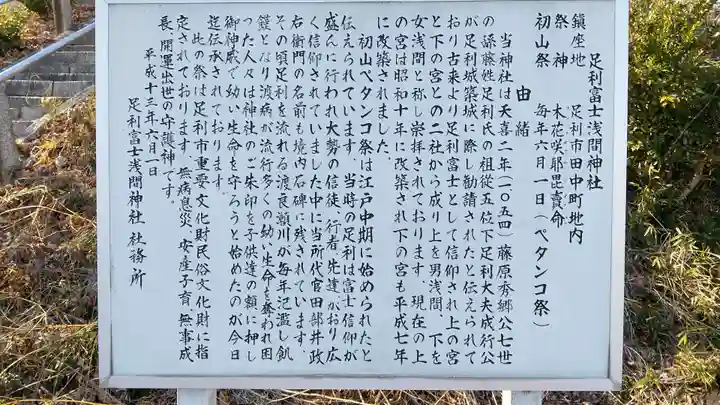 足利富士浅間神社
鎮座地　足利市田中町地内
祭神　木花咲耶毘賣命
初山祭　毎年六月一日（ペタンコ祭）
由緒
当神社は天喜二年（一〇五四）藤原秀郷公七世
の孫藤姓足利氏の祖従五位下足利大夫成行公
が足利城築城に際し勧請されたと伝えられて
おり古来より足利富士として信仰され上の宮
と下の宮との二社から成り上を男浅間、下を
女浅間と称し崇拝されております。現在の上
の宮は昭和十年に改築され下の宮も平成七年
に改築されました。
初山ペタンコ祭は江戸中期に始められたと
伝えられています。当時の足利は富士信仰が
盛んに行われ大勢の信徒、行者、先達がおり広
く信仰されていました中に当所代官田部井政
右衛門の名前も境内石碑に残されています。
その頃足利を流れる渡良瀬川が毎年氾濫し飢
饉となり渡病が流行多くの幼い生命を奪われ困
った人々は神社のご朱印を子供達の額に押し
御神威で幼い生命を守ろうと始めたのが今日
迄伝承されております。
此の祭は足利市重要文化財民俗文化財に指
定されております。無病息災、安産子育、無事成
長、開運出世の守護神です。
平成十三年六月一日
足利富士浅間神社　社務所